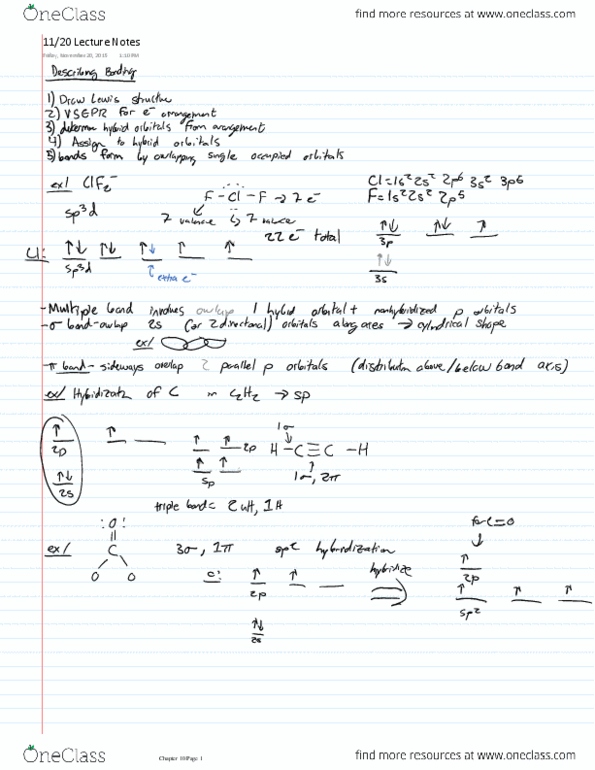 OneClass
find more resources at www.oneclass.com
11/20 Lecture Notes
Friday, November 20, 2015 1:10 PM
Describing Bonding
1) Draw Lewis structure
2) VSEPR for e⁻ arrangement
3) determine hybrid orbitals from arrangement
4) Assign to hybrid orbitals
5) bonds form by overlapping single occupied orbitals
ex/ ClF₂⁻
F - Cl - F → 7 e⁻
Cl = 1s² 2s² 2p⁶ 3s² 3p⁶
F = 1s² 2s² 2p⁵
sp³d
7 valence 7 valence
22 e⁻ total
3p
3s
Cl:
sp³d
extra e⁻
- Multiple bond involves overlap 1 hybrid orbital + nonhybridized p orbitals
- σ bond - overlap 2s (or 2 directional) orbitals along axes → cylindrical shape
ex/
- π bond - sideways overlap 2 parallel p orbitals (distribution above/below bond axis)
ex/ Hybridizatn of C in C₂H₂ → sp
1σ
2p
2p
H - C ≡ C - H
sp
1σ, 2π
2s
triple bond =
:O:
C
O O
ex/
3σ, 1π sp² hybridization
for C=O
C:
2p
hybridize
2p
sp²
2s
OneClass
Chapter 10 Page 1
find more resources at www.oneclass.com